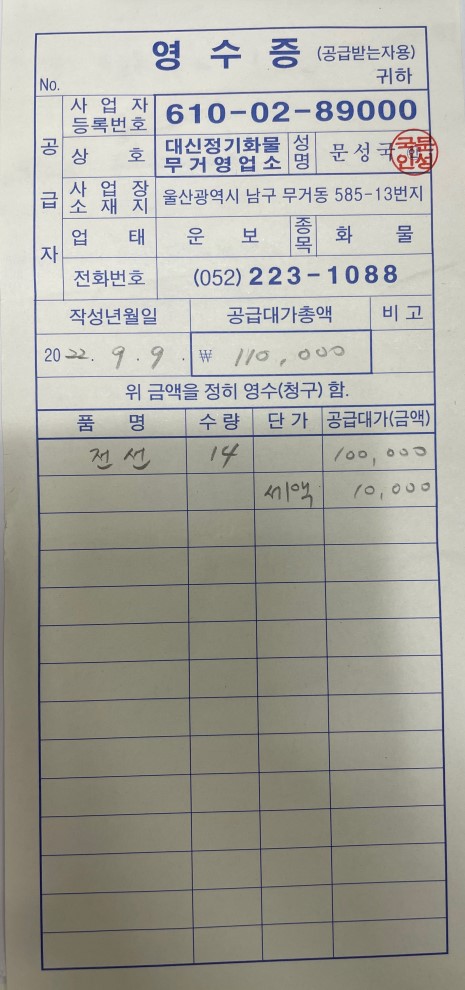 영 수 증 (공급받는자용)
No. 귀하
공급자
사 업 자 등록번호 610-02-89000
상 호 대신정기화물 무거영업소 성명 문성국 인
국문인성
사 업 장 소 재 지 울산광역시 남구 무거동 585-13번지
업 태 운 보 종목 화 물
전화번호 (052) 223-1088
작성년월일 공급대가총액 비 고
2022. 9. 9. ₩ 110,000
위 금액을 정히 영수(청구) 함.
품 명 수 량 단 가 공급대가(금액)
전선 14 100,000
세액 10,000